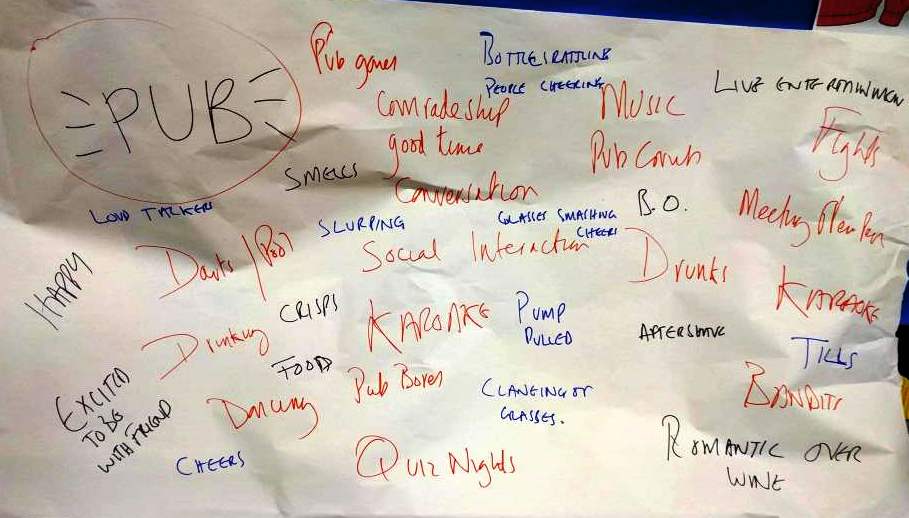 PUB
Pub games
BOTTLES RATTLING
PEOPLE CHEERING
LIVE ENTERTAINMEN
Comradeship
MUSIC
Fights
good time
Pub Crawls
SMELLS
Conversation
LOUD TALKERS
SLURPING
GLASSES SMASHING
CHEERS
B.O.
Meeting
Darts / Pool
Social Interaction
Drunks
HAPPY
KARAOKE
CRISPS
Drinking
KAROAKE
PUMP
PULLED
AFTERSHAVE
TILLS
FOOD
EXCITED
TO BE
WITH FRIEND
Dancing
Pub Bores
CLANGING OF
GLASSES.
BANDITS
CHEERS
Quiz Nights
ROMANTIC OVER
WINE